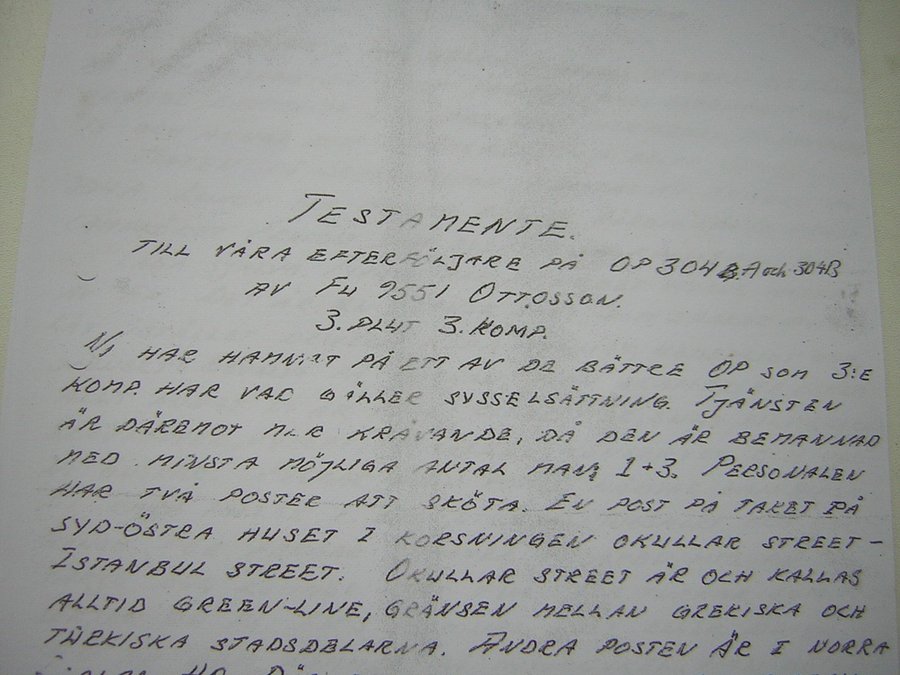 TESTAMENTE.
TILL VÅRA EFTERFÖLJARE PÅ OP 304 A och 304B
AV FU 9551 OTTOSSON.
3. PLUT 3. KOMP.
NI HAR HAMNAT PÅ ETT AV DE BÄTTRE OP SOM 3:E
KOMP. HAR VAD GÄLLER SYSSELSÄTTNING. TJÄNSTEN
ÄR DÄREMOT MER KRÄVANDE, DÅ DEN ÄR BEMANNAD
MED MINSTA MÖJLIGA ANTAL MAN, 1+3. PERSONALEN
HAR TVÅ POSTER ATT SKÖTA. EN POST PÅ TAKET PÅ
SYD-ÖSTRA HUSET I KORSNINGEN OKULLAR STREET-
ISTANBUL STREET. OKULLAR STREET ÄR OCH KALLAS
ALLTID GREEN-LINE, GRÄNSEN MELLAN GREKISKA OCH
TURKISKA STADSDELARNA. ANDRA POSTEN ÄR I NORRA